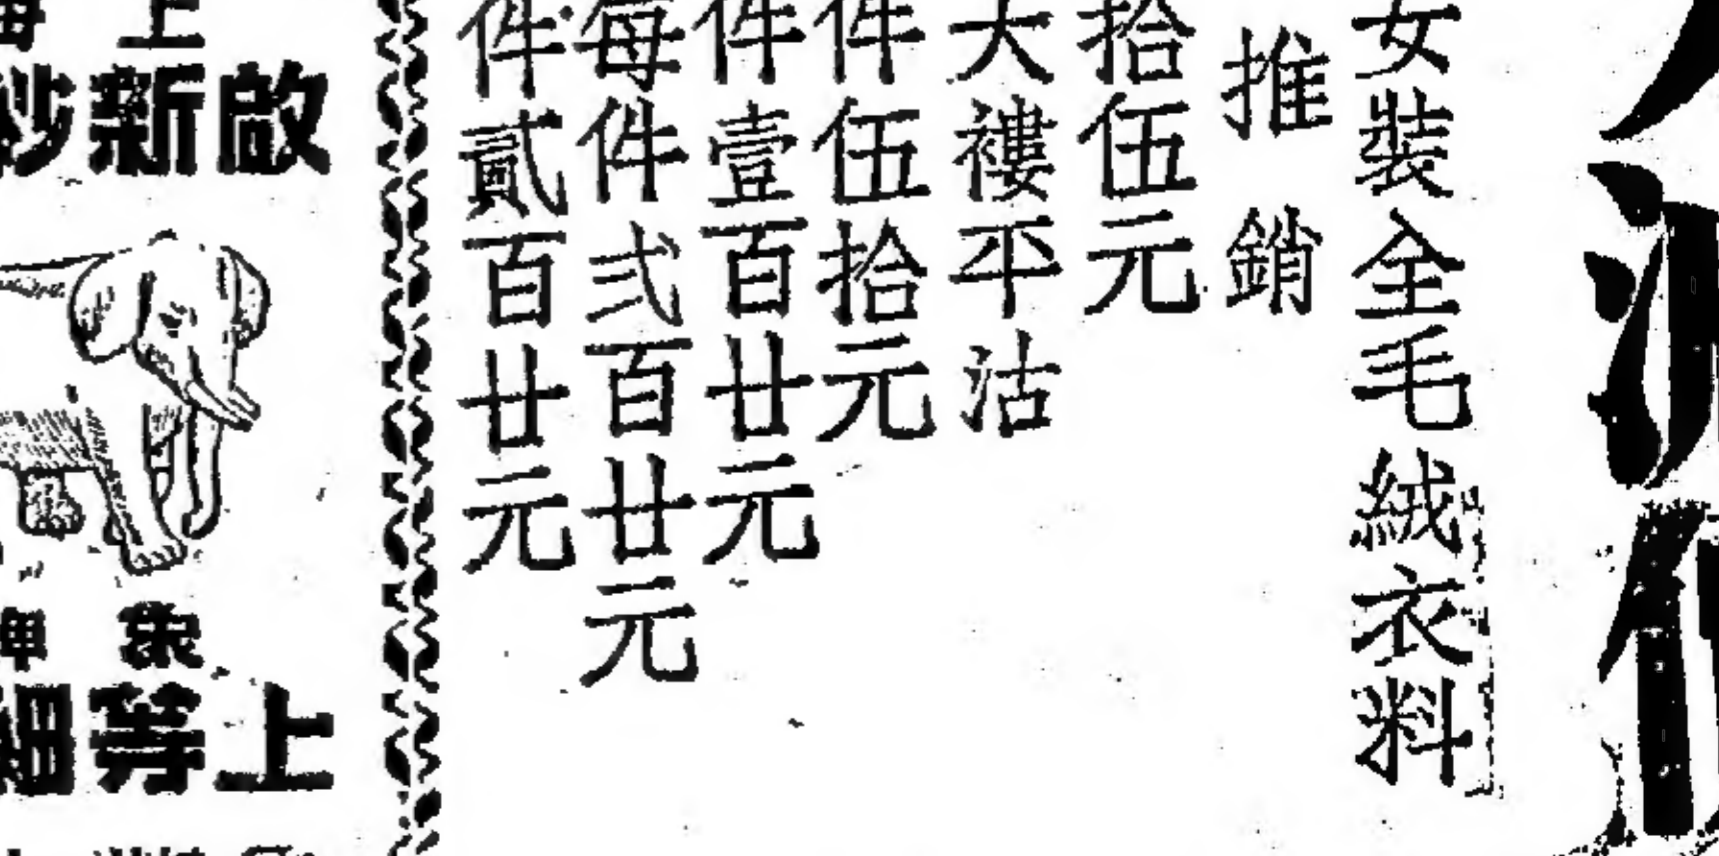 女裝全毛絨衣料
推銷
拾伍元
大褸平沽
件伍拾元
件壹百廿元
每件弍百廿元
件貳百廿元
上海
啟新紗
象牌
上等細